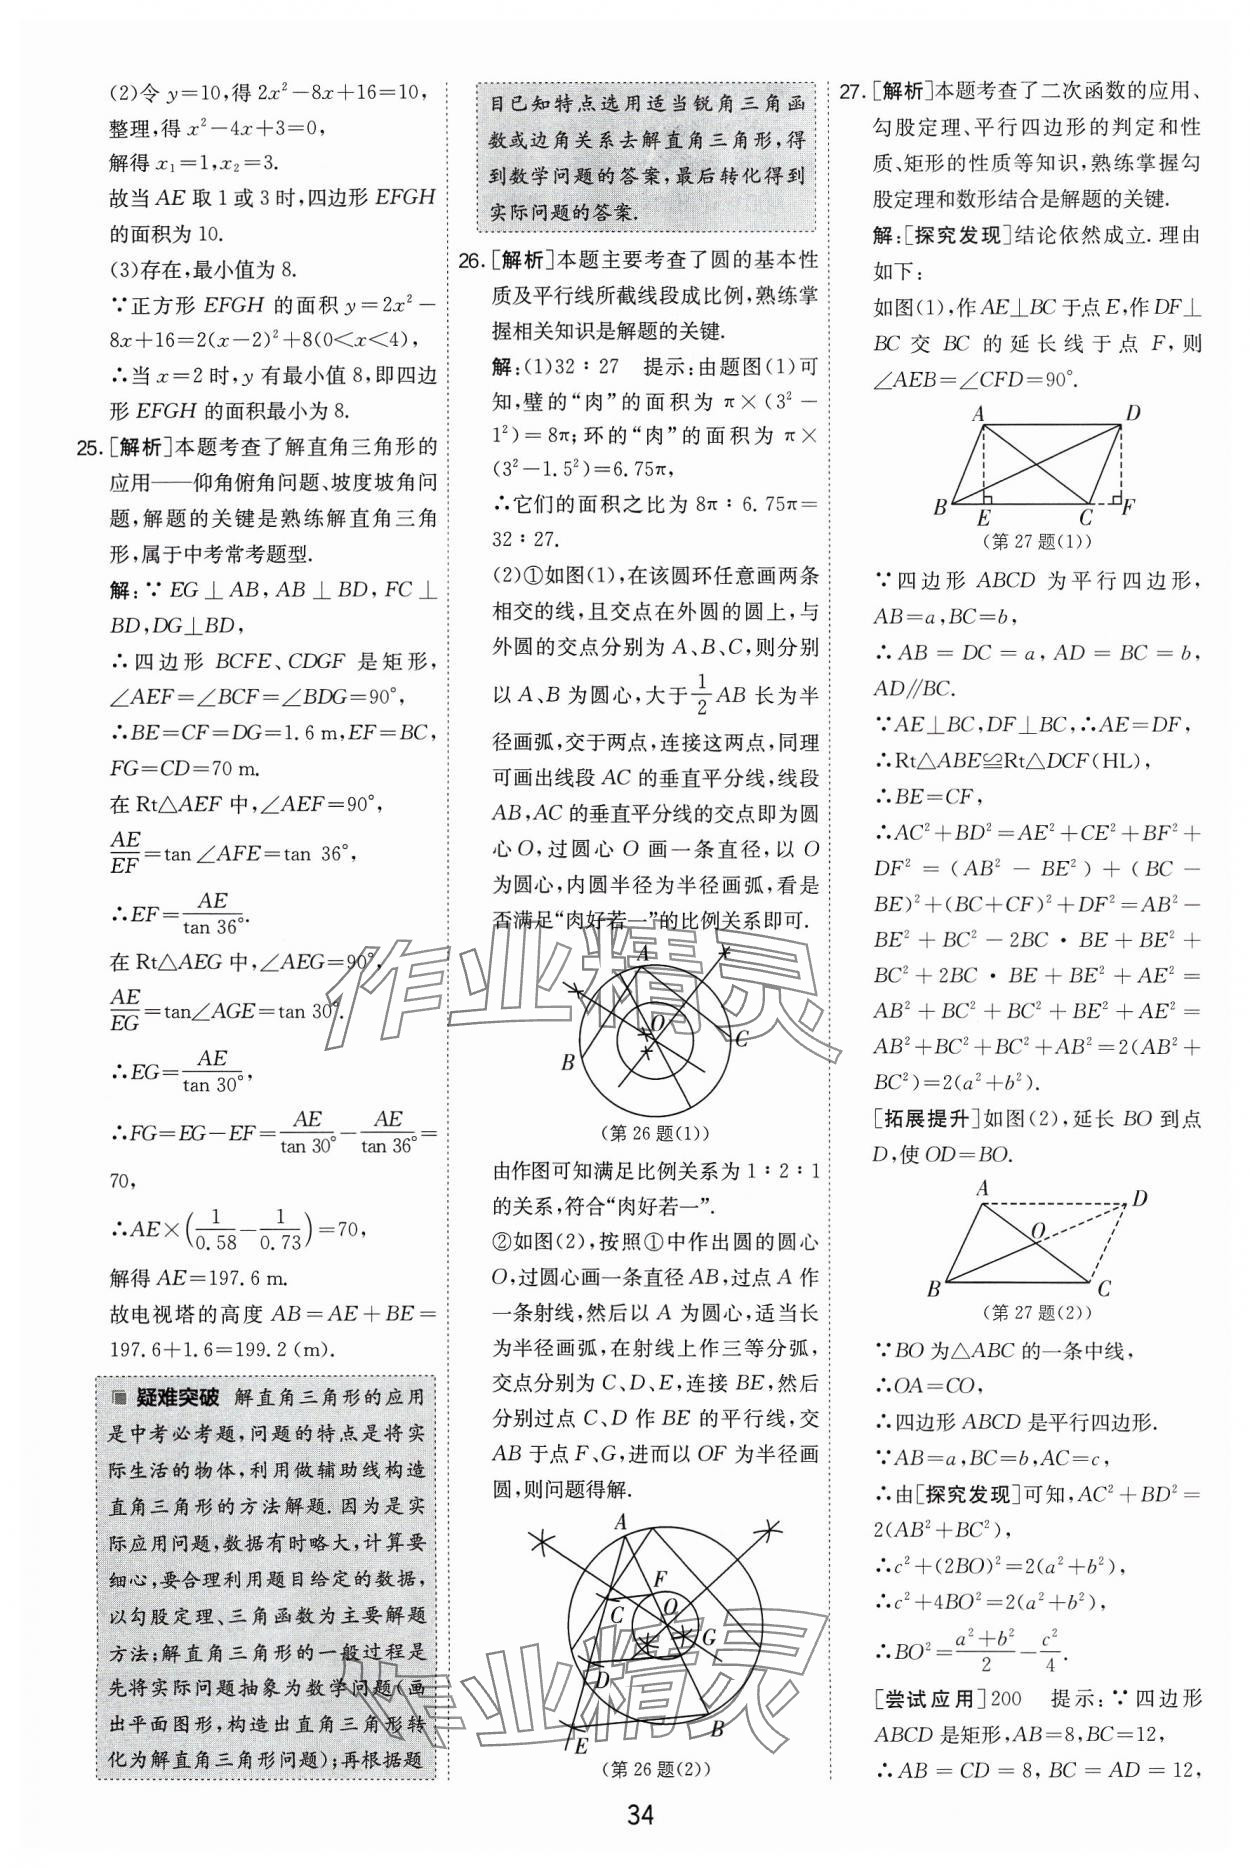 (2)令 y=10,得 2x²-8x+16=10,
整理,得 x²-4x+3=0,
解得 x₁=1,x₂=3.
故当 AE 取 1 或 3 时,四边形 EFGH
的面积为 10.
(3)存在,最小值为 8.
∵正方形 EFGH 的面积 y=2x²-
8x+16=2(x-2)²+8(0<x<4),
∴当 x=2 时,y 有最小值 8,即四边
形 EFGH 的面积最小为 8.
25. [解析]本题考查了解直角三角形的
应用——仰角俯角问题、坡度坡角问
题,解题的关键是熟练解直角三角
形,属于中考常考题型.
解:∵EG⊥AB,AB⊥BD,FC⊥
BD,DG⊥BD,
∴四边形 BCFE、CDGF 是矩形,
∠AEF=∠BCF=∠BDG=90°,
∴BE=CF=DG=1.6 m,EF=BC,
FG=CD=70 m.
在 Rt△AEF 中,∠AEF=90°,
AE/EF=tan∠AFE=tan 36°,
∴EF=AE/tan 36°.
在 Rt△AEG 中,∠AEG=90°,
AE/EG=tan∠AGE=tan 30°.
∴EG=AE/tan 30°,
∴FG=EG-EF=AE/tan 30°-AE/tan 36°=
70,
∴AE×(1/0.58-1/0.73)=70,
解得 AE=197.6 m.
故电视塔的高度 AB=AE+BE=
197.6+1.6=199.2 (m).
疑难突破 解直角三角形的应用
是中考必考题,问题的特点是将实
际生活的物体,利用做辅助线构造
直角三角形的方法解题.因为是实
际应用问题,数据有时略大,计算要
细心,要合理利用题目给定的数据,
以勾股定理、三角函数为主要解题
方法;解直角三角形的一般过程是
先将实际问题抽象为数学问题(画
出平面图形,构造出直角三角形转
化为解直角三角形问题);再根据题
目已知特点选用适当锐角三角函
数或边角关系去解直角三角形,得
到数学问题的答案,最后转化得到
实际问题的答案.
26. [解析]本题主要考查了圆的基本性
质及平行线所截线段成比例,熟练掌
握相关知识是解题的关键.
解:(1)32∶27 提示:由题图(1)可
知,璧的“肉”的面积为 π×(3²-
1²)=8π;环的“肉”的面积为 π×
(3²-1.5²)=6.75π,
∴它们的面积之比为 8π∶6.75π=
32∶27.
(2)①如图(1),在该圆环任意画两条
相交的线,且交点在外圆的圆上,与
外圆的交点分别为 A、B、C,则分别
以 A、B 为圆心,大于1/2AB 长为半
径画弧,交于两点,连接这两点,同理
可画出线段 AC 的垂直平分线,线段
AB,AC 的垂直平分线的交点即为圆
心 O,过圆心 O 画一条直径,以 O
为圆心,内圆半径为半径画弧,看是
否满足“肉好若一”的比例关系即可.
A
O
C
B
(第 26 题(1))
由作图可知满足比例关系为 1∶2∶1
的关系,符合“肉好若一”.
②如图(2),按照①中作出圆的圆心
O,过圆心画一条直径 AB,过点 A 作
一条射线,然后以 A 为圆心,适当长
为半径画弧,在射线上作三等分弧,
交点分别为 C、D、E,连接 BE,然后
分别过点 C、D 作 BE 的平行线,交
AB 于点 F、G,进而以 OF 为半径画
圆,则问题得解.
A
F
C
O
G
D
B
E
(第 26 题(2))
27. [解析]本题考查了二次函数的应用、
勾股定理、平行四边形的判定和性
质、矩形的性质等知识,熟练掌握勾
股定理和数形结合是解题的关键.
解:[探究发现]结论依然成立.理由
如下:
如图(1),作 AE⊥BC 于点 E,作 DF⊥
BC 交 BC 的延长线于点 F,则
∠AEB=∠CFD=90°.
A
D
B
E
C
F
(第 27 题(1))
∵四边形 ABCD 为平行四边形,
AB=a,BC=b,
∴AB=DC=a,AD=BC=b,
AD∥BC.
∵AE⊥BC,DF⊥BC,∴AE=DF,
∴Rt△ABE≌Rt△DCF(HL),
∴BE=CF,
∴AC²+BD²=AE²+CE²+BF²+
DF²=(AB²-BE²)+(BC-
BE)²+(BC+CF)²+DF²=AB²-
BE²+BC²-2BC·BE+BE²+
BC²+2BC·BE+BE²+AE²=
AB²+BC²+BC²+BE²+AE²=
AB²+BC²+BC²+AB²=2(AB²+
BC²)=2(a²+b²).
[拓展提升]如图(2),延长 BO 到点
D,使 OD=BO.
A
D
O
B
C
(第 27 题(2))
∵BO 为△ABC 的一条中线,
∴OA=CO,
∴四边形 ABCD 是平行四边形.
∵AB=a,BC=b,AC=c,
∴由[探究发现]可知,AC²+BD²=
2(AB²+BC²),
∴c²+(2BO)²=2(a²+b²),
∴c²+4BO²=2(a²+b²),
∴BO²=(a²+b²)/2-c²/4.
[尝试应用]200 提示:∵四边形
ABCD 是矩形,AB=8,BC=12,
∴AB=CD=8,BC=AD=12,
作业精灵
作业精灵
34